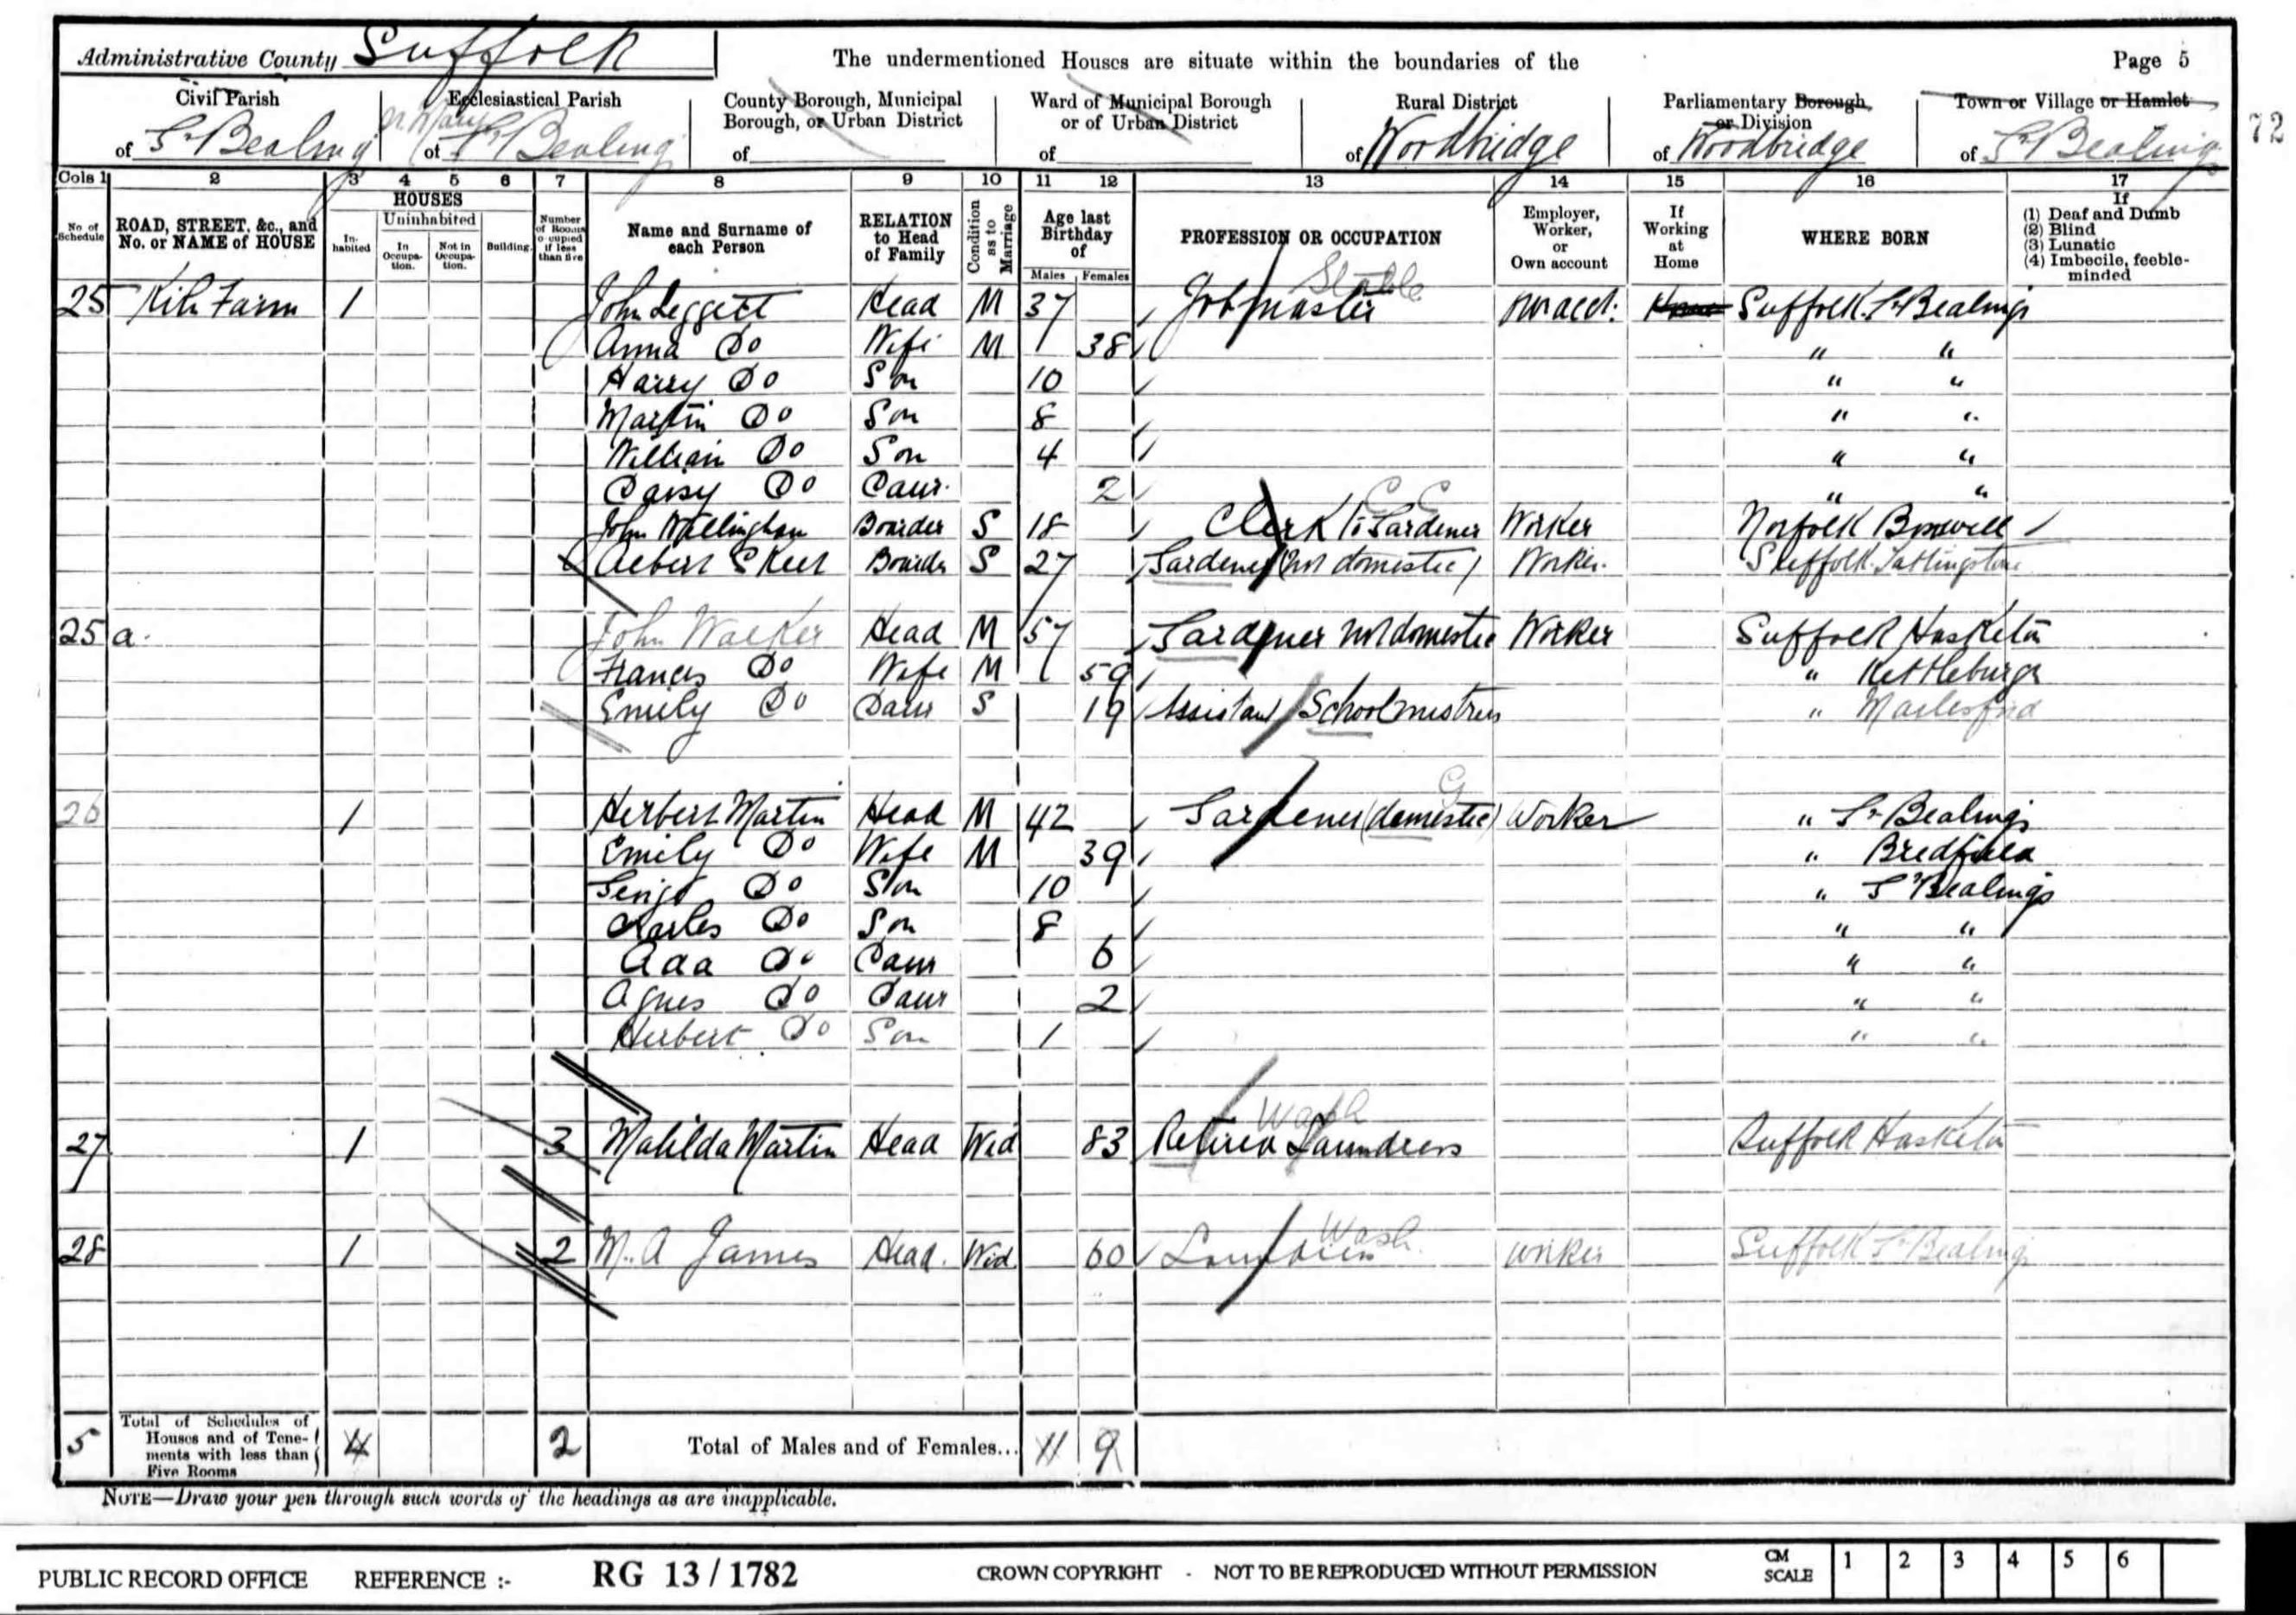 Administrative County Suffolk The undermentioned Houses are situate within the boundaries of the Page 5
Civil Parish Ecclesiastical Parish County Borough, Municipal Borough, or Urban District Ward of Municipal Borough or of Urban District Rural District Parliamentary Borough or Division Town or Village or Hamlet
of Sº Bealing of Sº Bealing of of of Woodbridge of Woodbridge of Sº Bealing 72
Cols 1 2 3 4 5 6 7 8 9 10 11 12 13 14 15 16 17
No of Schedule ROAD, STREET, &c., and No. or NAME of HOUSE HOUSES Inhabited Uninhabited In Occupation. Not in Occupation. Building. Number of Rooms occupied if less than five Name and Surname of each Person RELATION to Head of Family Condition as to Marriage Age last Birthday of Males Females PROFESSION OR OCCUPATION Employer, Worker, or Own account If Working at Home WHERE BORN If (1) Deaf and Dumb (2) Blind (3) Lunatic (4) Imbecile, feeble-minded
Stable
25 Kiln Farm 1 John Leggett Head M 37 Jobmaster own acct: Home Suffolk Sº Bealings
Anna Do Wife M 38 " "
Harry Do Son 10 " "
Martin Do Son 8 " "
William Do Son 4 " "
Daisy Do Daur. 2 " "
John Wellingham Boarder S 18 Clerk to Gardener Worker Norfolk
Albert S Keet Boarder S 27 Gardener (not domestic) Worker. Suffolk Tattingstone
25 a. John Walker Head M 57 Gardener not domestic Worker Suffolk Hasketon
Frances Do Wife M 59 " Kettleburgh
Emily Do Daur S 19 Assistant Schoolmistress " Marlesford
G
26 1 Herbert Martin Head M 42 Gardener (domestic) Worker " Sº Bealings
Emily Do Wife M 39 " Bredfield
Do Son 10 " Sº Bealings
Charles Do Son 8 " "
Ada Do Daur 6 " "
Agnes Do Daur 2 " "
Herbert Do Son 1 " "
Wash
27 1 3 Matilda Martin Head Wid 83 Retired Laundress Suffolk Hasketon
Wash.
28 1 2 M. A James Head. Wid 60 Laundress Worker Suffolk Sº Bealings
5 Total of Schedules of Houses and of Tenements with less than Five Rooms 4 2 Total of Males and of Females... 11 9
NOTE—Draw your pen through such words of the headings as are inapplicable.
PUBLIC RECORD OFFICE REFERENCE :- RG 13 / 1782 CROWN COPYRIGHT - NOT TO BE REPRODUCED WITHOUT PERMISSION CM SCALE 1 2 3 4 5 6